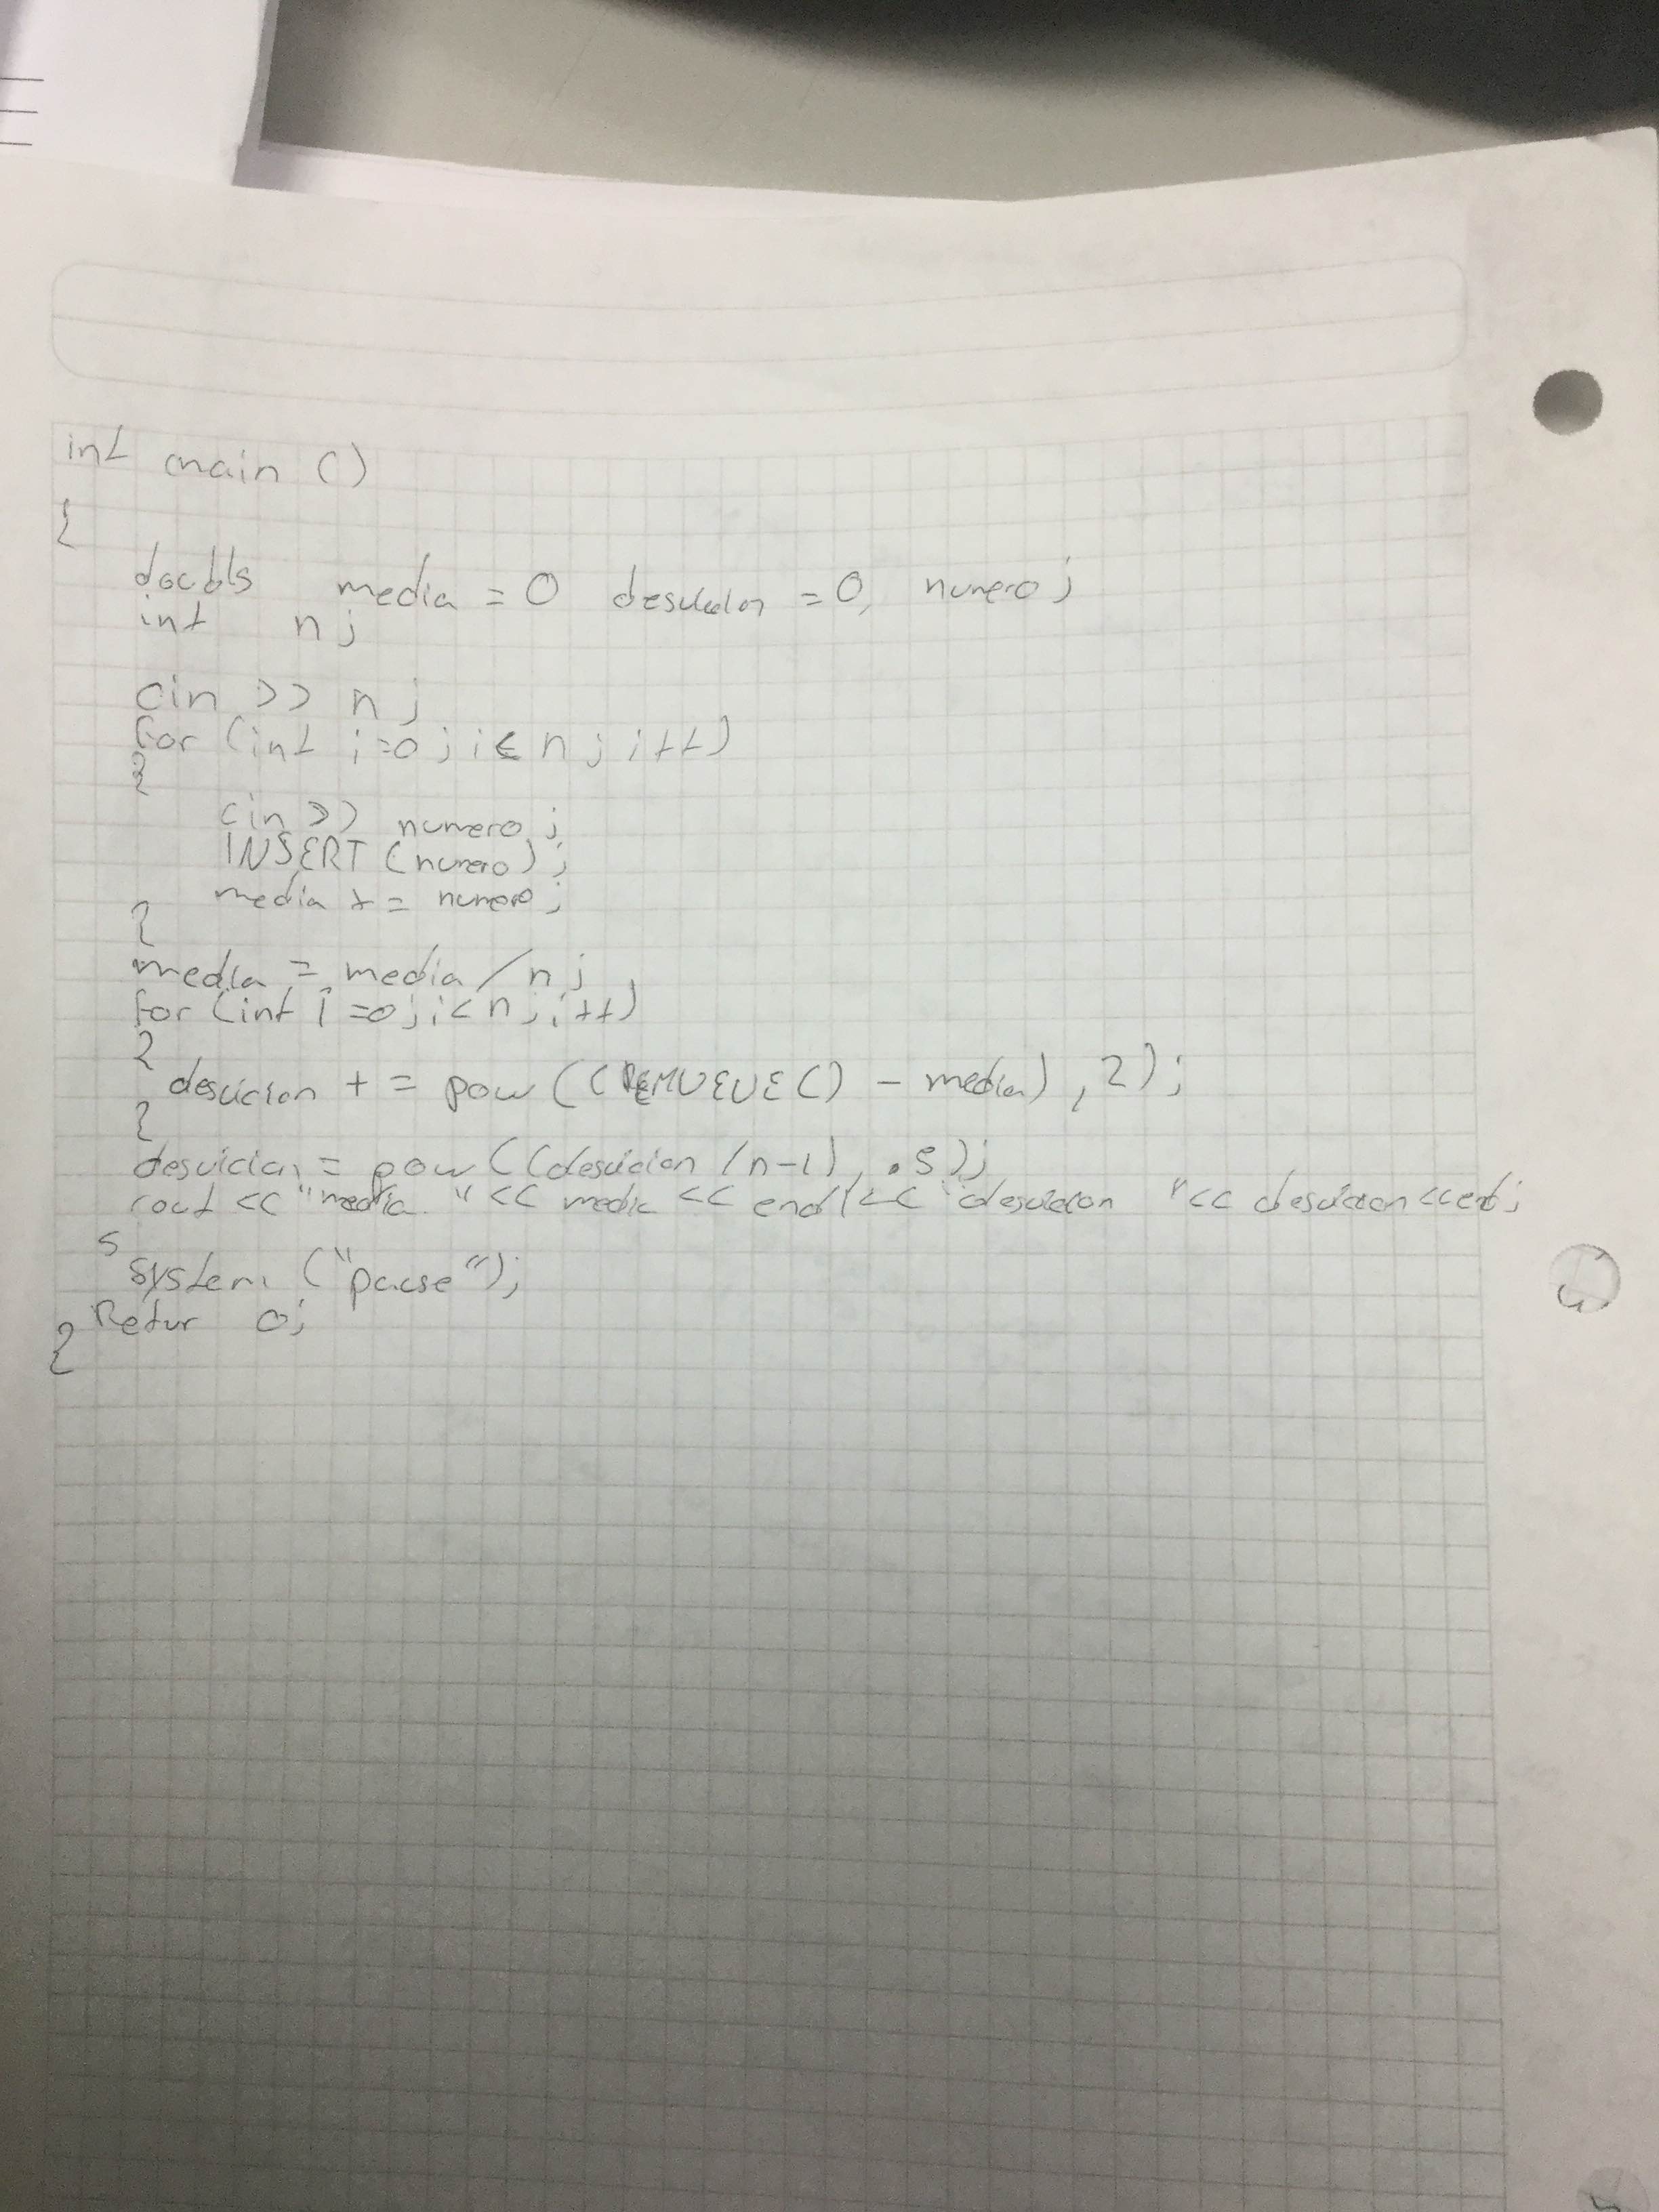 int main ()
{
double media = 0 desviacion = 0, numero;
int n;
cin >> n;
for (int i=0; i< n; i++)
{
cin >> numero;
INSERT (numero);
media += numero;
}
media = media / n;
for (int i =0; i< n; i++)
{
desvicion += pow ((REMUEVE() - media), 2);
}
desvicion = pow ((desvicion /n-1), .5);
cout << "media " << media << endl << "desvicion " << desvicion << endl;
system ("pause");
Retur 0;
}